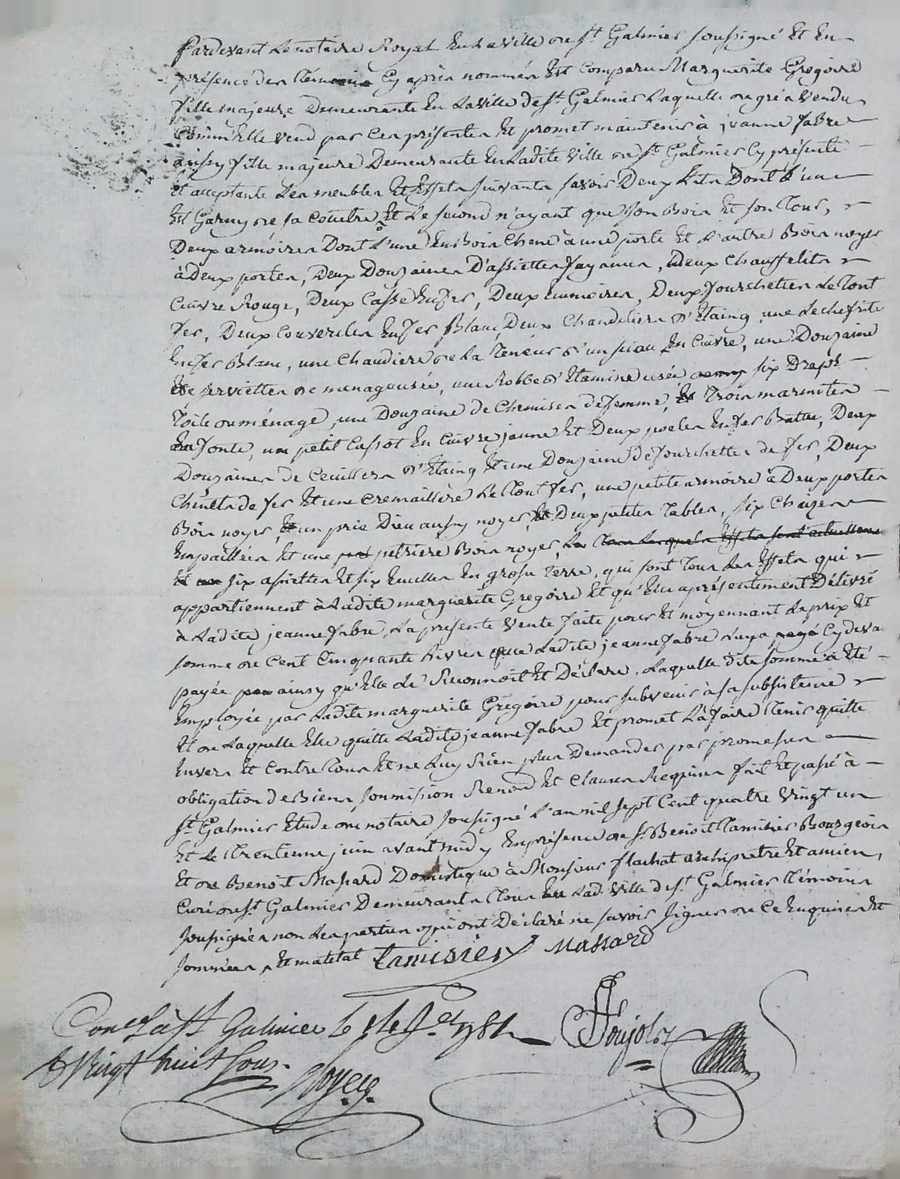 Pardevant Le notaire Royal En La ville de St. Galmier soussigné Et En
présence des témoins Cy après nommés Est Comparu Marguerite Gregoire
fille majeure Demeurante En La ville de St. Galmier Laquelle de gré a Vendu
Comm' Elle vend par Ces présentes Et promet maintenir à jeanne fabre
aussy fille majeure Demeurante En Ladite Ville de St. Galmier Cy présente
Et acceptante Les meubles Et Effets suivants savoir Deux Lits Dont L'un
Est Garny de sa Couitre Et Le second n'ayant que son Bois Et son Tour,
Deux armoires Dont L'une En Bois Chene à une porte Et L'autre Bois noyer
à Deux portes, Deux Douzaines D'assiettes fayance, Deux Chauffelits
Cuivre Rouge, Deux Casse En fer, Deux Deux fourchetes Le Tout
fer, Deux Couvercles En fer Blanc, Deux Chandeliers d'Etaing, une Lechefrite
En fer Blanc, une Chaudiere de La Teneur d'un siau En Cuivre, une Douzaine
de serviettes de menage usée, une Robbe d'Etamine usée six Draps
Toile du ménage, une Douzaine de Chemises de femme, Trois marmites
En fonte, un petit Cassot En Cuivre jaune Et Deux poeles En fer Battu, Deux
Douzaines de Ceuilleres d'Etaing Et une Douzaine de fourchettes de fer, Deux
Chenets de fer Et une Cremaillère Le Tout fer, une petite armoire à Deux portes
Bois noyer, un prie Dieu aussy noyer, Deux petites Tables, six Chaizes
Empaillées Et une petriere Bois noyer, Lesquels Effets sont actuellement
six assiettes Et six Ecuelles En grosse Terre, qui sont Tous Les Effets qui
appartiennent à Ladite marguerite Gregoire Et qu'Elle a présentement Délivré
à Ladite jeanne fabre, La présente Vente faite pour Et moyennant Le prix Et
somme de Cent Cinquante Livres que Ladite jeanne fabre Luy a payé Cy deva
payée ainsy qu'Elle Le Reconnoit Et Déclare, Laquelle dite somme a Eté
Employée par Ladite marguerite Gregoire pour subvenir à sa subsistence
Et de Laquelle Elle quitte Ladite jeanne fabre Et promet La faire Tenir quitte
Envers Et Contre Tous Et ne Luy Rien plus Demander par promesses
obligation de Biens soumission Renon Et Clauses Requises fait Et passé à
St. Galmier Etude du notaire soussigné L'an mil sept Cent quatre Vingt un
Et Le Trentieme juin avant midy En présence de Sr Benoit Tamisier Bourgeois
Et de Benoit Massard Domestique à Monsieur flachat archiprêtre Et ancien
Curé de St. Galmier Demeurants Tous En Lad. Ville de St. Galmier Témoins
soussignés non Les parties qui ont Déclaré ne savoir signer de Ce Enquises Et
sommées,
Tamisier Massard
Conlé à St Galmier le 1781
Vingt huit sous.